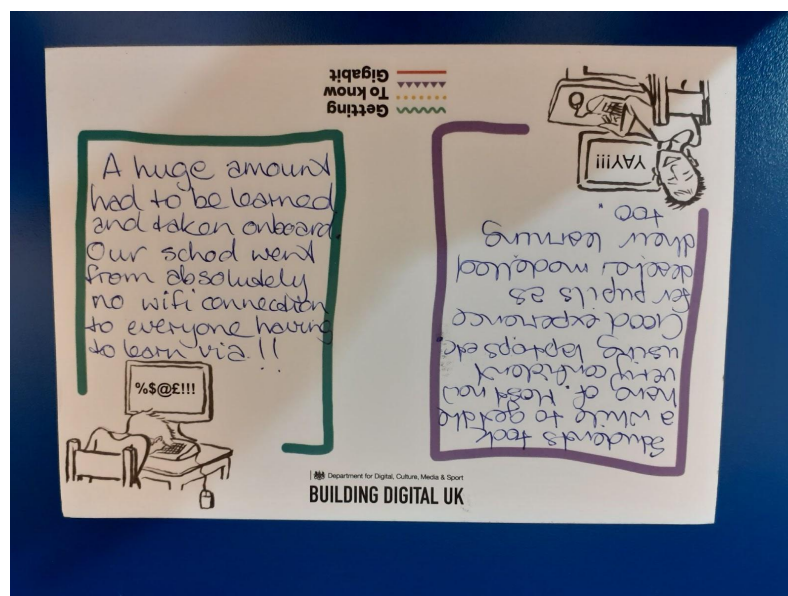 A huge amount
had to be learned
and taken onboard.
Our school went
from absolutely
no wifi connection
to everyone having
to learn via!!
%$@£!!!
Department for Digital, Culture, Media & Sport
BUILDING DIGITAL UK
Getting
To know
Gigabit
Students took
a while to get the
hang of. Most now
very confident
using laptops etc.
Good experience
for pupils as
teacher modelled
their learning
too.
YAY!!!